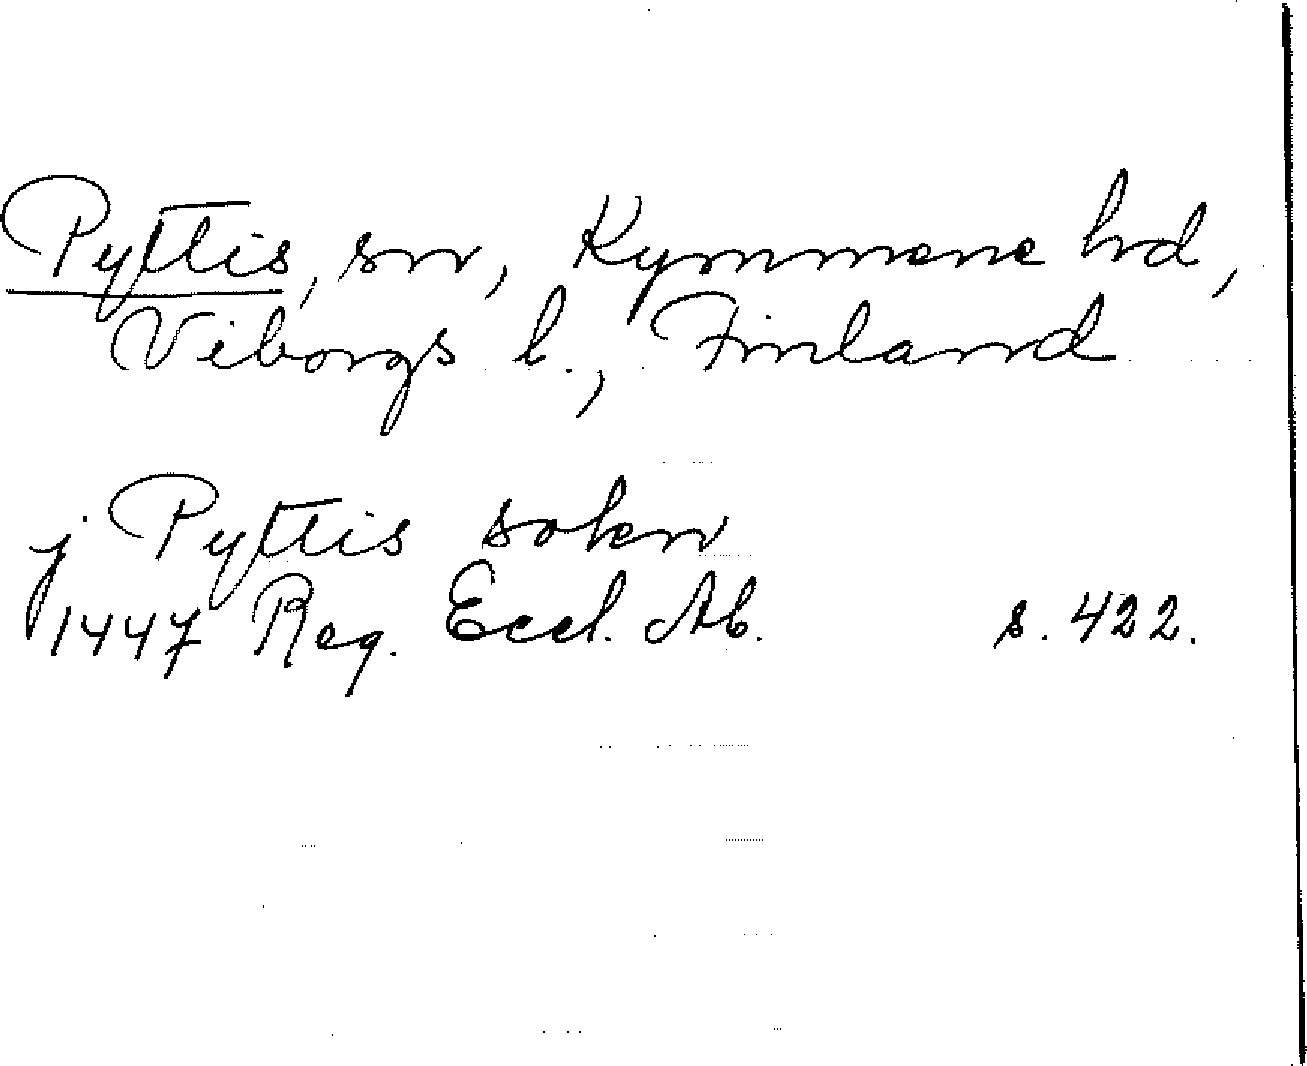 Pyttis, sn, Kymmene hd,
Viborgs l., Finland
j Pyttis sokn
1447 Reg. Eccl. Ab. s. 422.